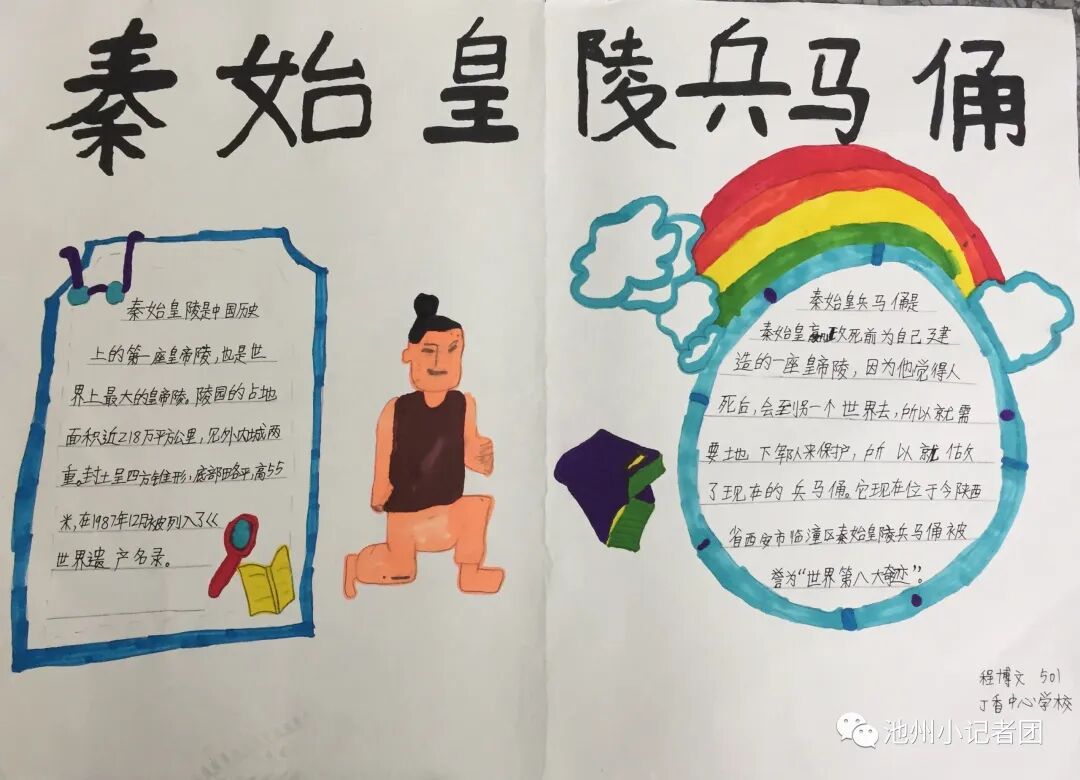 秦始皇陵兵马俑
秦始皇陵是中国历史
上的第一座皇帝陵，也是世
界上最大的皇帝陵。陵园的占地
面积近218万平方公里，见外内城两
重。封土呈四方锥形，底部略平，高55
米，在1987年12月被列入了《
世界遗产名录。
秦始皇兵马俑是
秦始皇嬴政死前为自己建
造的一座皇帝陵，因为他觉得人
死后，会到另一个世界去，所以就需
要地下军队人来保护，所以就
了现在的兵马俑。它现在位于今陕西
省西安市临潼区秦始皇陵兵马俑被
誉为“世界第八大奇迹”。
程博文 501
丁香中心学校
池州小记者团